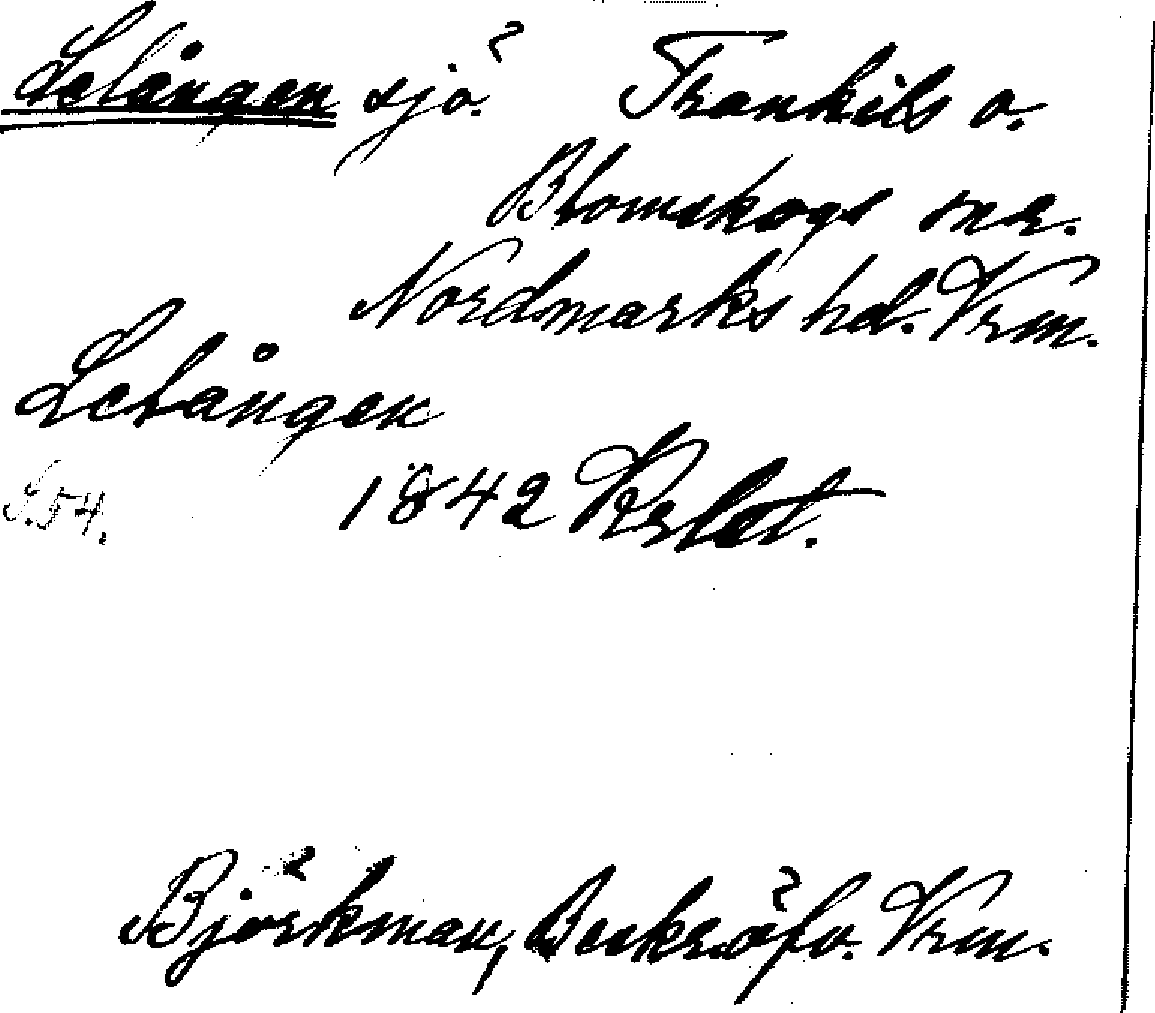 Lelången sjö Trankils o.
Blomskogs snr.
Nordmarks hd. Vrm.
Lelången
S. 54. 1842
Björkman, Beskr. öfv. Vrm.